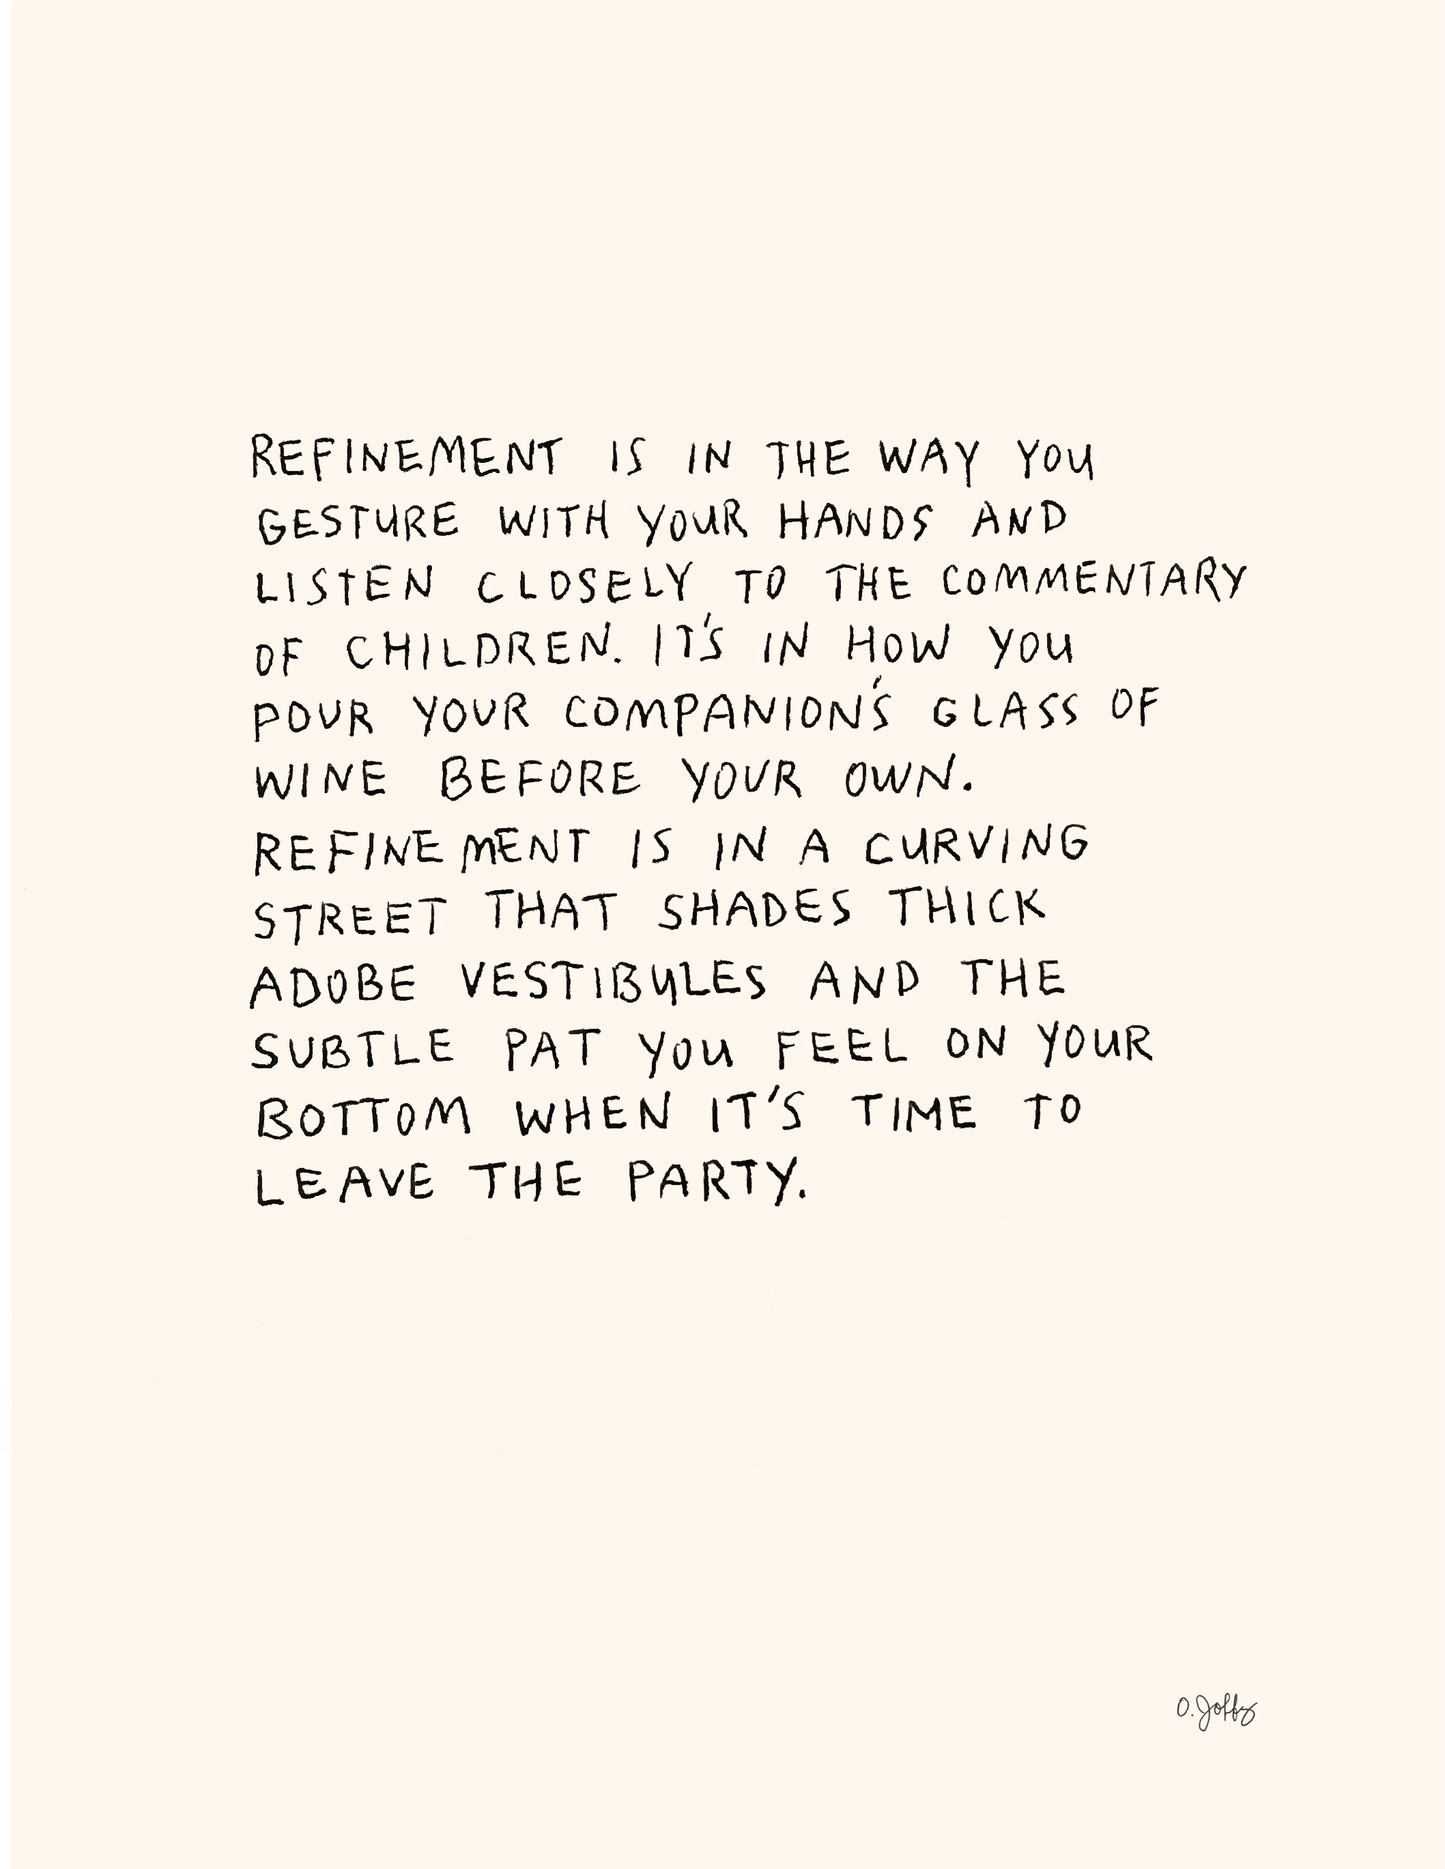 REFINEMENT IS IN THE WAY YOU
GESTURE WITH YOUR HANDS AND
LISTEN CLOSELY TO THE COMMENTARY
OF CHILDREN. IT'S IN HOW YOU
POUR YOUR COMPANION'S GLASS OF
WINE BEFORE YOUR OWN.
REFINEMENT IS IN A CURVING
STREET THAT SHADES THICK
ADOBE VESTIBULES AND THE
SUBTLE PAT YOU FEEL ON YOUR
BOTTOM WHEN IT'S TIME TO
LEAVE THE PARTY.
O.